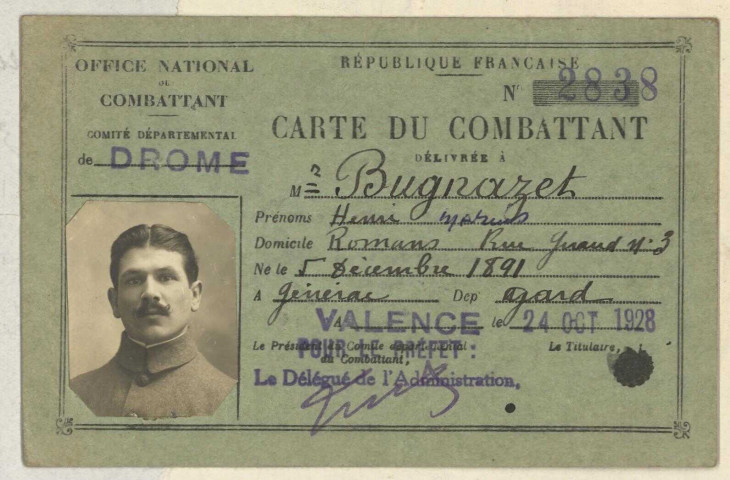 OFFICE NATIONAL
DU
COMBATTANT
COMITÉ DÉPARTEMENTAL
de DROME
RÉPUBLIQUE FRANÇAISE
N° 2838
CARTE DU COMBATTANT
DÉLIVRÉE À
Mr Bugnazet
Prénoms Henri Marius
Domicile Romans Rue n° 3
Né le 5 Décembre 1891
A Générac Dep gard
A VALENCE le 24 OCT 1928
Le Président du Comité départemental
du Combattant,
Le Titulaire,
POUR LE PRÉFET :
Le Délégué de l'Administration,